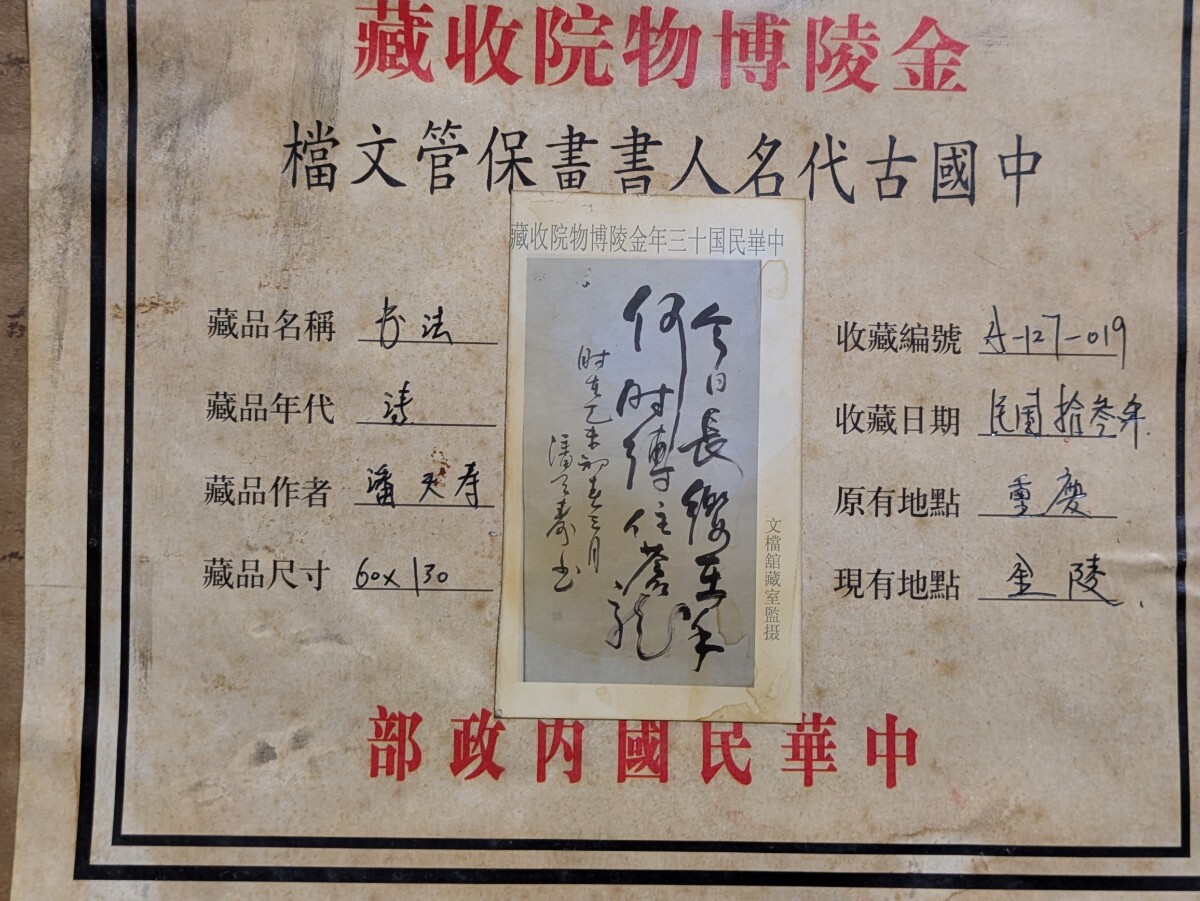 金陵博物院收藏
中國古代名人書畫保管文檔
藏品名稱 书法
藏品年代 清
藏品作者 潘天寿
藏品尺寸 60x130
中崋民国十三年金陵博物院收藏
今日長纓在手
何时縛住蒼龍
时在乙未初春三月
潘天壽书
文檔舘藏室監摄
收藏編號 A-127-019
收藏日期 民国拾叁年.
原有地點 重慶
現有地點 金陵.
中華民國内政部